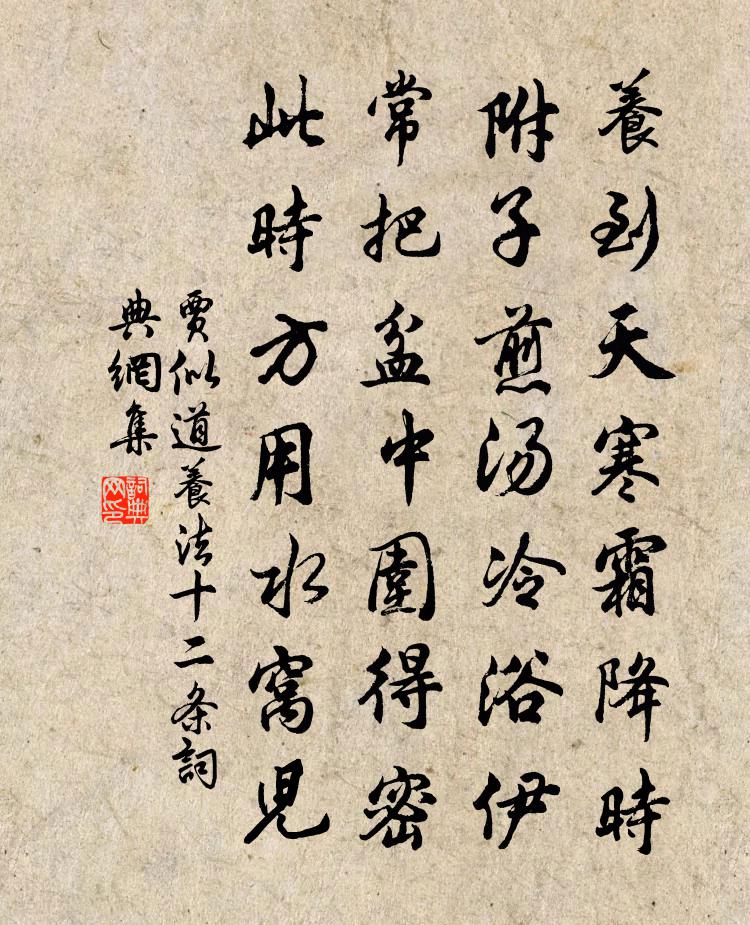 養到天寒霜降時
附子煎汤冷浴伊
常把盆中圍得密
此時方用水窩児
賈似道養法十二条詞
典網集
詞典
网印